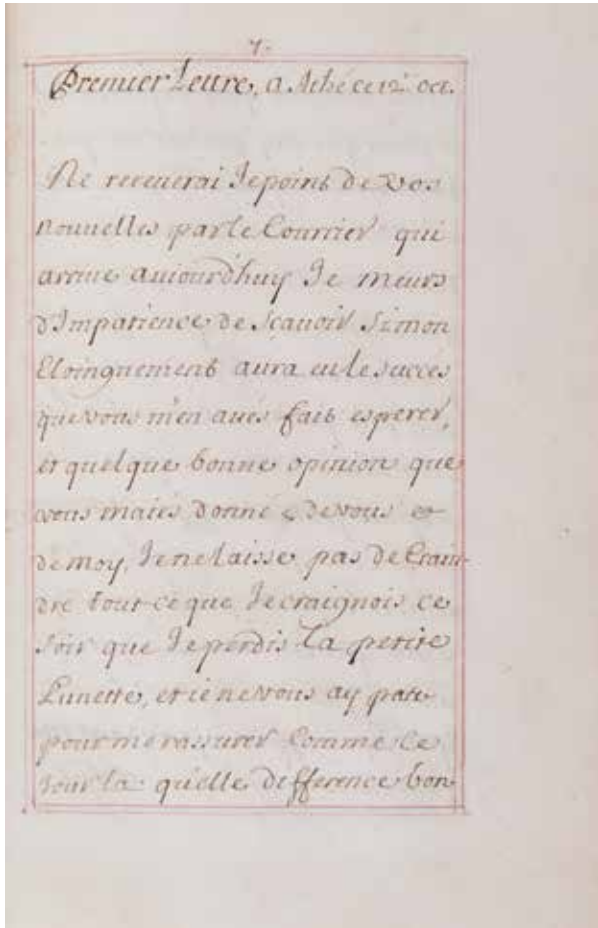 7.
Premier Lettre, a Athé ce 12 oct.
Ne receuerai Je point de vos
nouuelles par le Courrier qui
arriue auiourd'huy Je meurs
d'Impatience de sçauoir Si mon
Eloingnement aura eu le succés
que vous m'en aués fait esperer,
et quelque bonne opinion que
vous m'aiés donné e de vous et
de moy, Je ne laisse pas de Crain-
dre tout ce que Je craignois ce
soir que Je perdis la petite
Lunette, et ie ne vous ay pas
pour me rassurer Comme ce
Jour la quelle difference bon